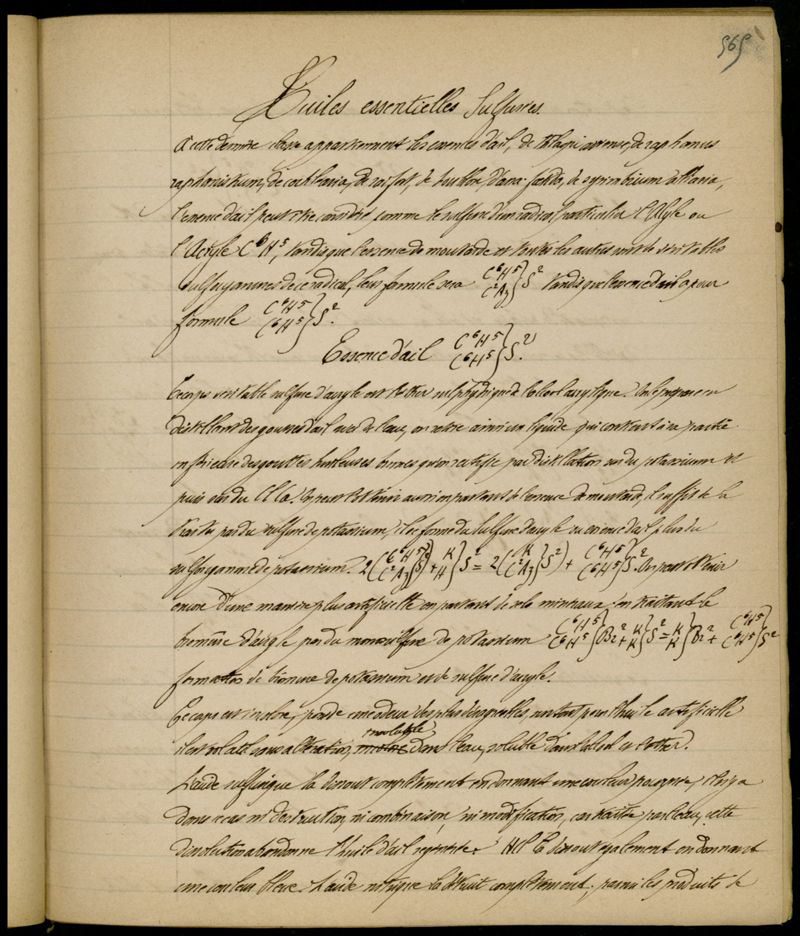 565
Huiles essentielles Sulfurées.
A cette dernière classe appartiennent les essences d'ail, de thlaspi arvense, de raphanus
raphanistrum, de cochlearia, de raifort, de d'assa-foetida, de
l'essence d'ail peut être considérée comme le sulfure d'un radical particulier l'Allyle ou
l'Acryle C⁶H⁵, tandis que l'essence de moutarde et toutes les autres sont de véritables
sulfocyanures de ce radical, leur formule sera C⁶H⁵ C²Az } S² tandis que l'essence d'ail a pour
formule C⁶H⁵ C⁶H⁵ } S².
Essence d'ail C⁶H⁵ C⁶H⁵ } S².
Ce corps véritable sulfure d'acryle est l'éther sulfhydrique de l'alcool acrylique. On le prépare en
distillant des gousses d'ail avec de l'eau, on retire ainsi un liquide qui contient à sa partie
des gouttes huileuses brunes qu'on rectifie par distillation sur du potassium et
puis sur du Cl Ca. On peut l'obtenir aussi en partant de l'essence de moutarde, il suffit de la
traiter par du sulfure de potassium, il se forme du sulfure d'acryle ou essence d'ail plus du
sulfocyanure de potassium. 2 (C⁶H⁵ C²Az } S²) + K } S² = 2 (K C²Az } S²) + C⁶H⁵ C⁶H⁵ } S². On peut l'obtenir
encore d'une manière plus artificielle en partant de sels minéraux en traitant le
bromure d'acryle par du monosulfure de potassium C⁶H⁵ C⁶H⁵ } Br² + K K } S² = K K } Br² + C⁶H⁵ C⁶H⁵ } S²
formation de bromure de potassium et de sulfure d'acryle.
Ce corps est incolore, possède une odeur des plus désagréables, surtout pour l'huile artificielle
il est volatil sans altération, insoluble dans l'eau, soluble dans l'alcool et l'éther.
L'acide sulfurique la dissout complètement en donnant une couleur pourpre, il n'y a
dans ce cas ni destruction, ni combinaison, ni modification, car traitée par l'eau, cette
dissolution abandonne l'huile d'ail HCl la dissout également en donnant
une couleur bleue. L'acide nitrique la détruit complètement; parmi les produits de